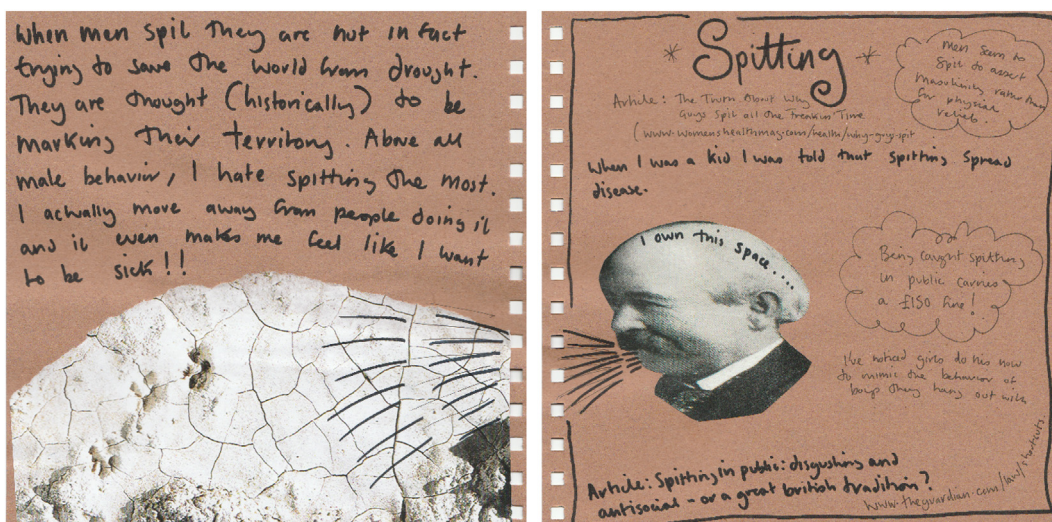 When men spit they are not in fact
trying to save the world from drought.
They are thought (historically) to be
marking their territory. Above all
male behavior, I hate spitting the most.
I actually move away from people doing it
and it even makes me feel like I want
to be sick!!
Spitting
men seem to
spit to assert
masculinity rather than
for physical
relief.
Article: The Truth About Why
Guys Spit all the Freakin Time
(www.womenshealthmag.com/health/why-guys-spit
When I was a kid I was told that spitting spread
disease.
I own this space....
Being caught spitting
in public carries
a £150 fine!
I've noticed girls do this now
to mimic the behavior of
boys they hang out with
Article: Spitting in public: disgusting and
antisocial - or a great british tradition?
www.theguardian.com/law/shortcuts